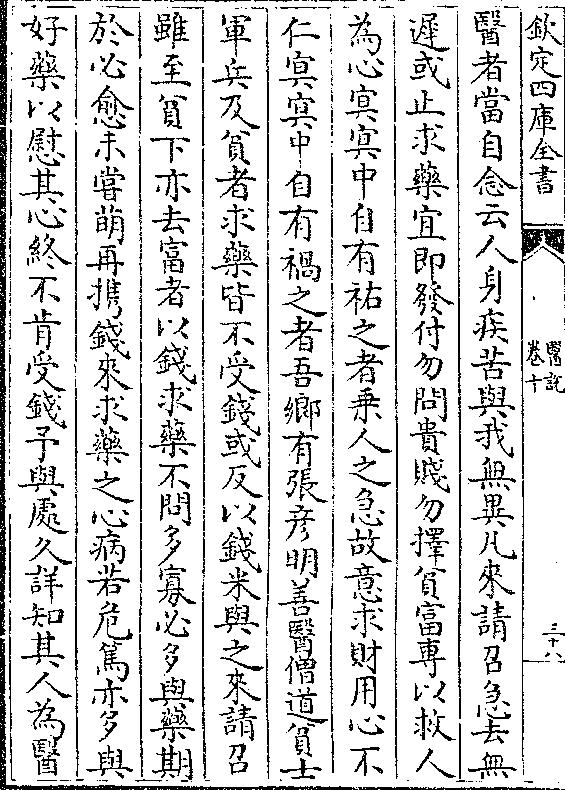 欽定四庫全書
醫說
卷十
三十八
醫者當自念云人身疾苦與我無異凡來請召急去無
遲或止求藥宜即發付勿問貴賤勿擇貧富專以救人
為心冥冥中自有祐之者乗人之急故意求財用心不
仁冥冥中自有禍之者吾鄉有張彦明善醫僧道貧士
軍兵及貧者求藥皆不受錢或反以錢米與之來請召
雖至貧下亦去富者以錢求藥不問多寡必多與藥期
於必愈未嘗萌再携錢來求藥之心病若危篤亦多與
好藥以慰其心終不肯受錢予與處久詳知其人為醫